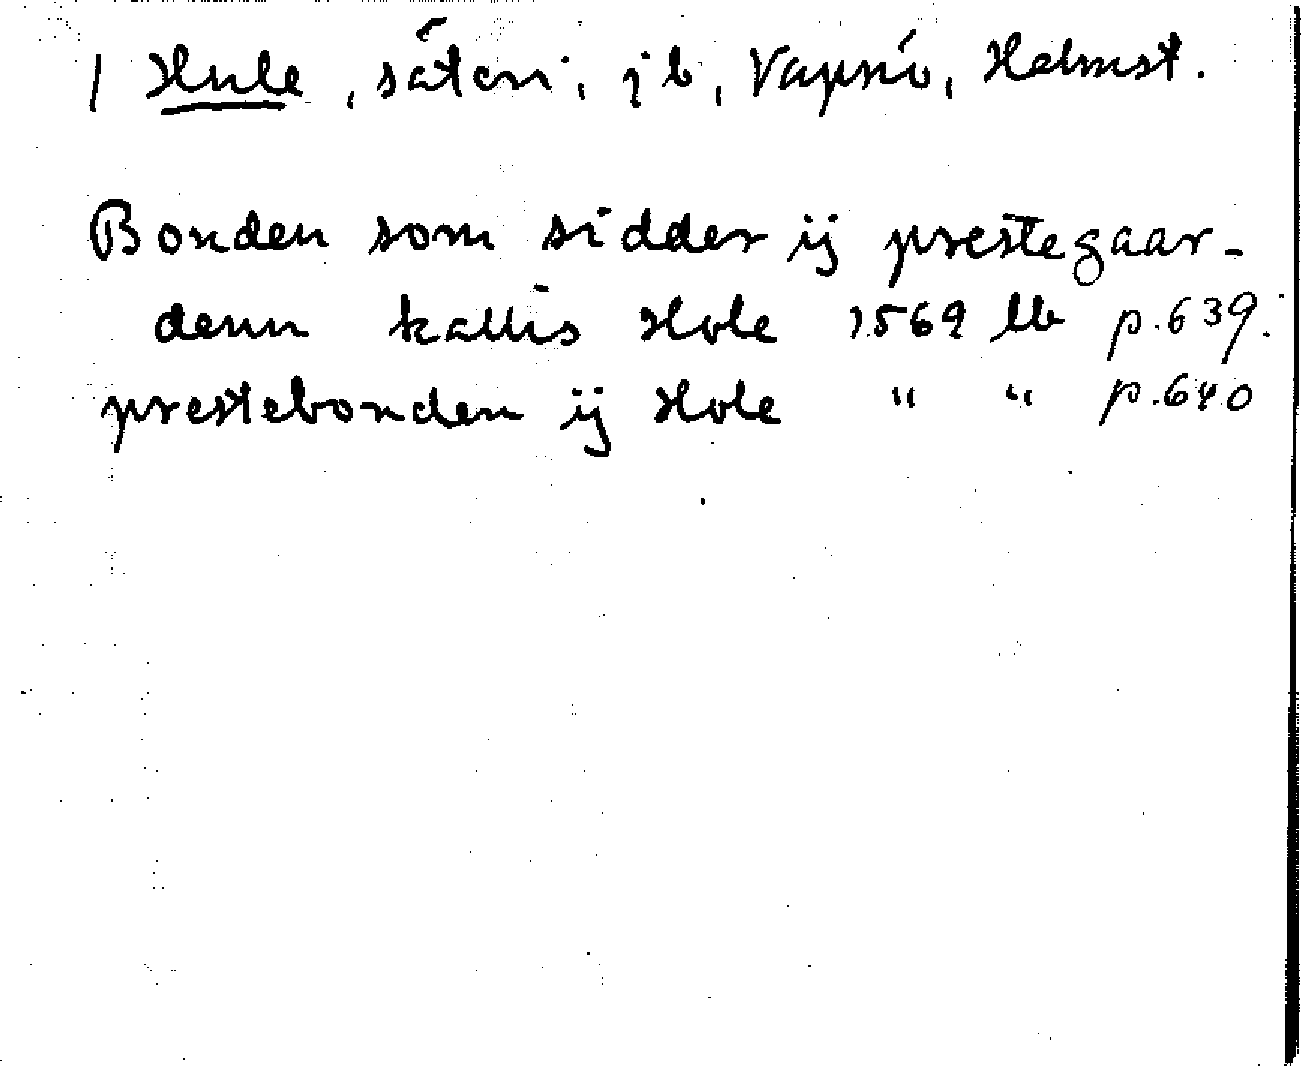 1 Hule, säteri, jb, Vapnö, Halmst.
Bonden som sidder ij prestegaar-
denn kallis Hole 1569 lb p.639.
prestebonden ij Hole " " p.640